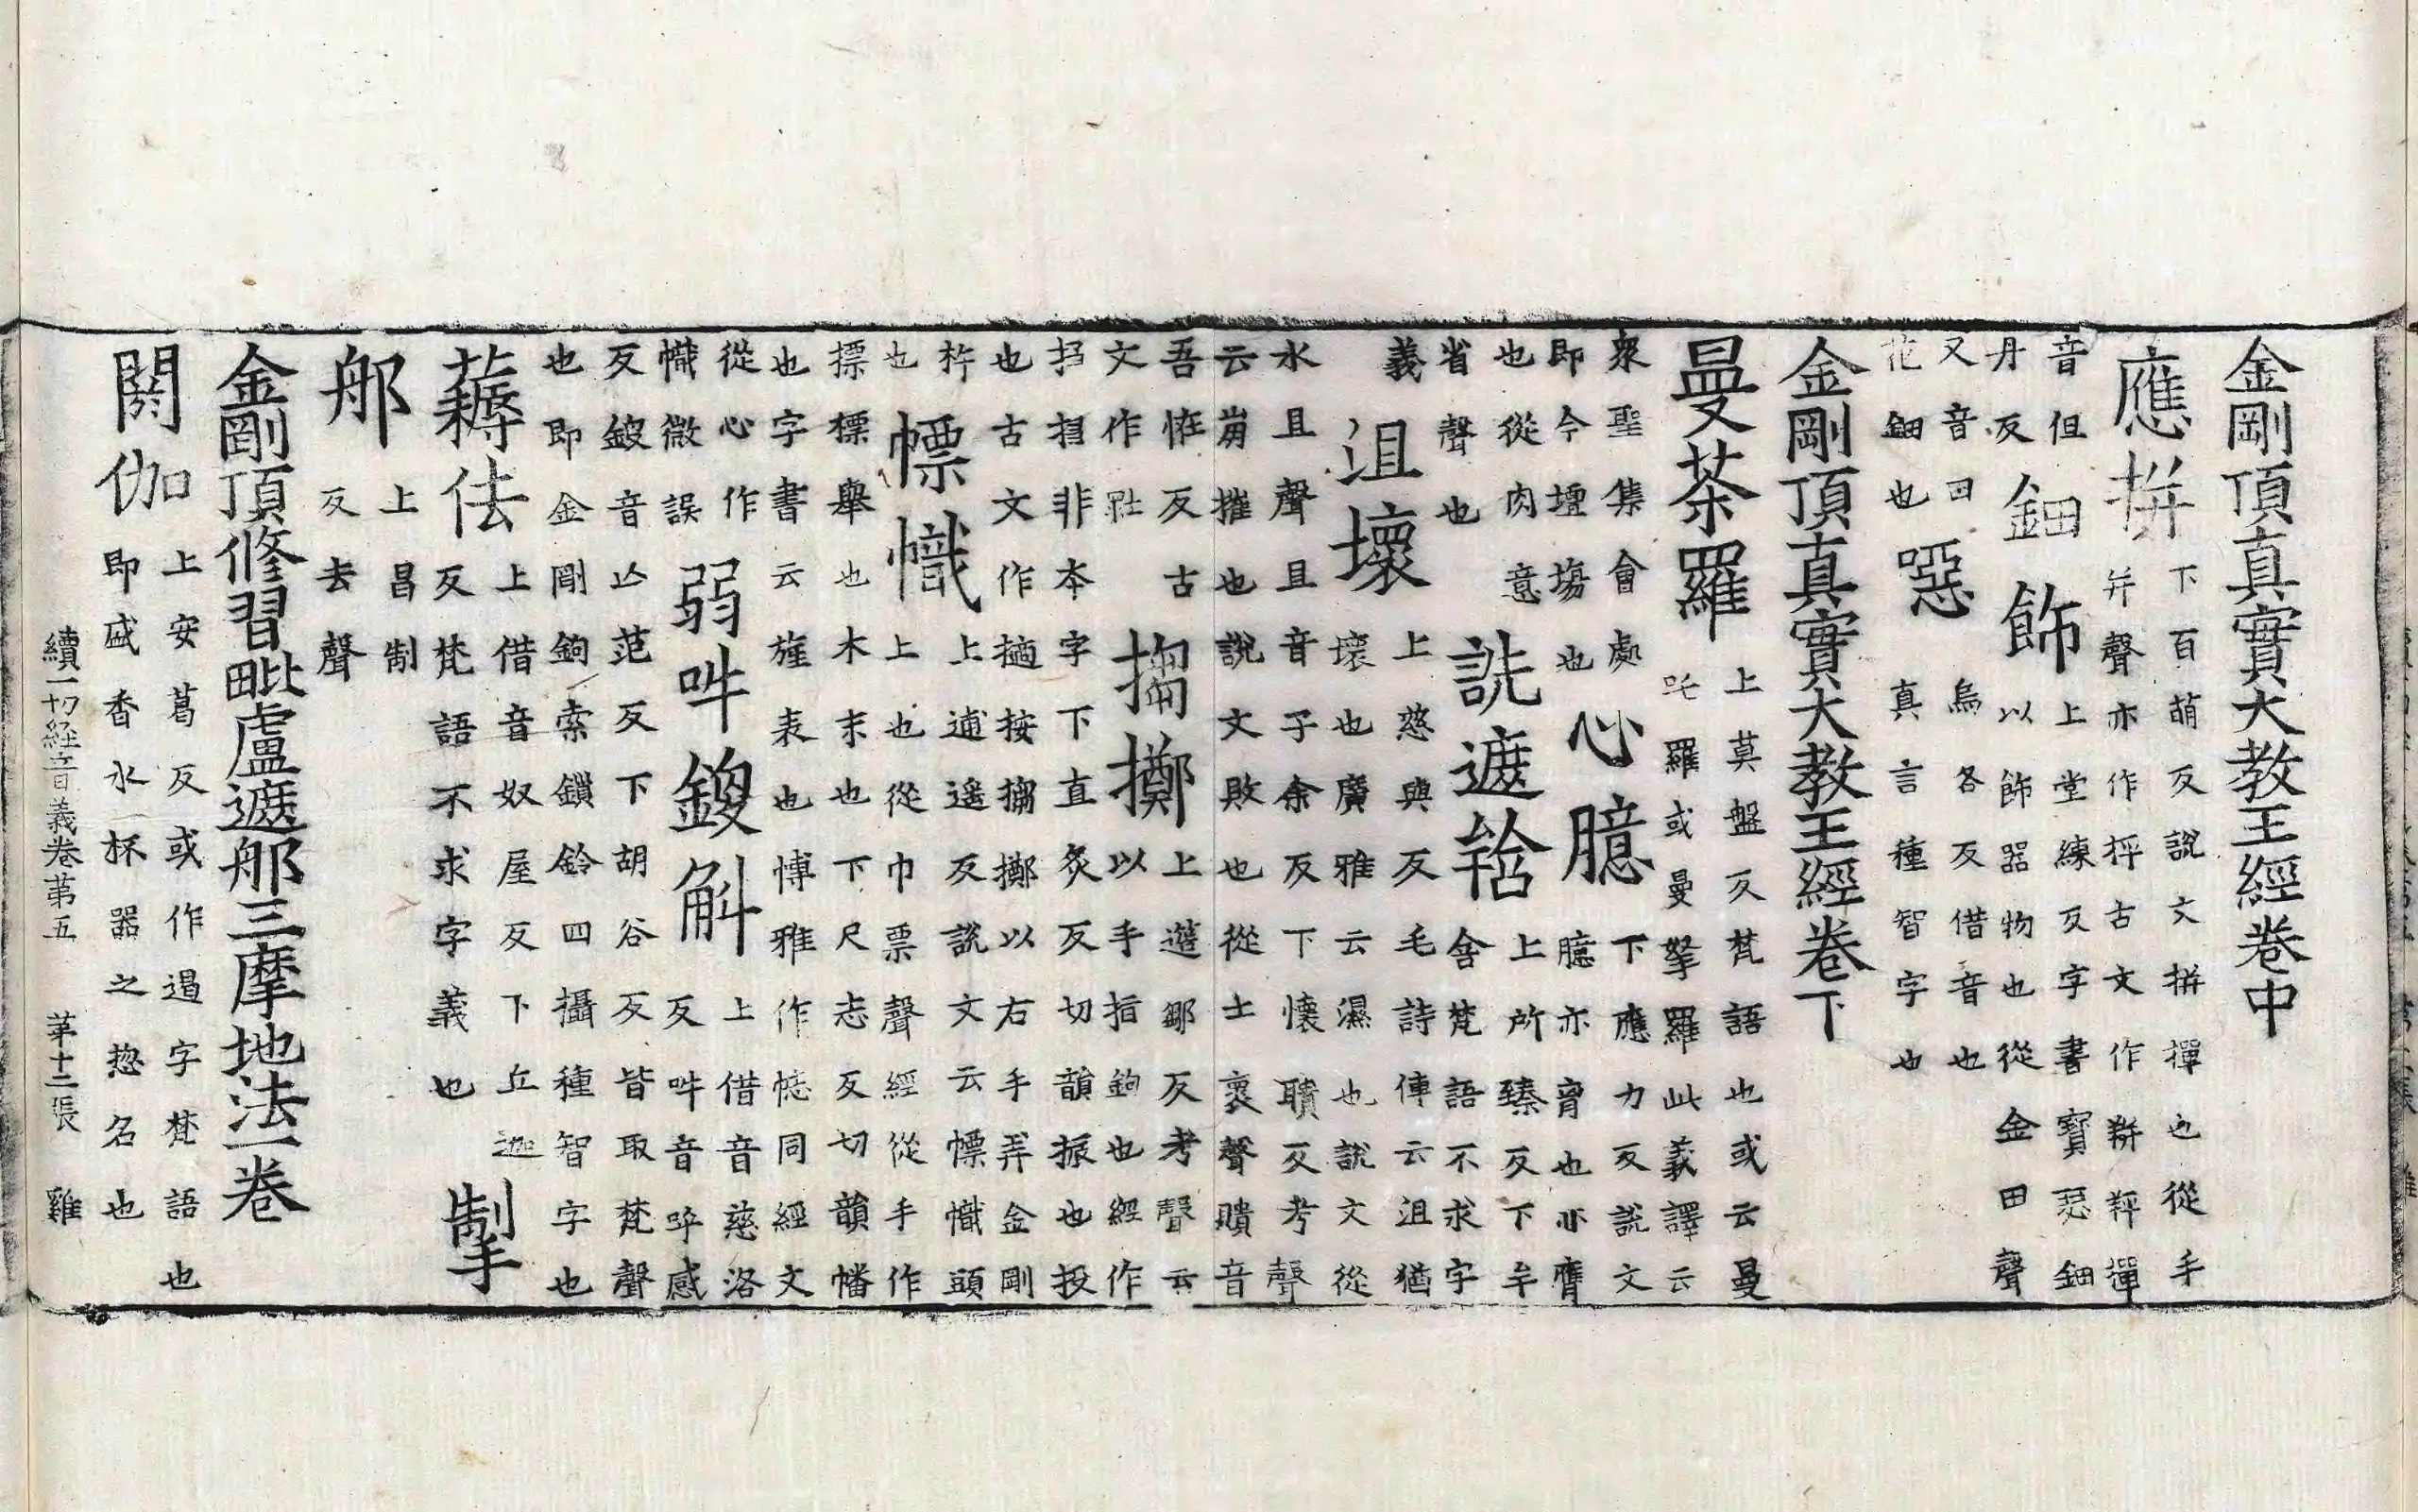 金剛頂真實大教王經卷中
應拼下百萌反說文拼撣也從手
幷聲亦作抨古文作拼抨撣
音但鈿飾上堂練反字書寶瑟鈿
丹反以飾器物也從金田聲
又音田噁烏各反借音也
花鈿也真言種智字也
金剛頂真實大教王經卷下
曼荼羅上莫盤反梵語也或云曼
吒羅或曼拏羅此義譯云
衆聖集會處心臆下應力反說文
即今壇場也臆亦肎也亦膺
也從肉意詵遮䇎上所臻反下羊
省聲也舍梵語不求字
義沮壞上慈與反毛詩傳云沮猶
壞也廣雅云濕也說文從
水且聲且音子余反下懷聵反考聲
云崩摧也說文敗也從土褱聲聵音
吾恠反古搊擲上遵鄒反考聲云
文作以手指鉤也經作
捛非本字下直炙反切韻振也投
也古文作擿按搊擲以右手弄金剛
杵幖幟上逋遥反說文云幖幟頭
也上也從巾票聲經從手作
摽摽舉也木末也下尺志反切韻幡
也字書云旌表也博雅作同經文
從心作弱吽鑁斛上借音慈洛
幟微誤反吽音感
反鑁音亾范反下胡谷反皆取梵聲
也即金剛鉤索鎖鈴四攝種智字也
䔾佉上借音奴屋反下丘迦掣
反梵語不求字義也
那上昌制
反去聲
金剛頂修習毗盧遮那三摩地法一卷
閼伽上安葛反或作遏字梵語也
即盛香水杯器之惣名也
續一切經音義卷第五 第十二張 雞